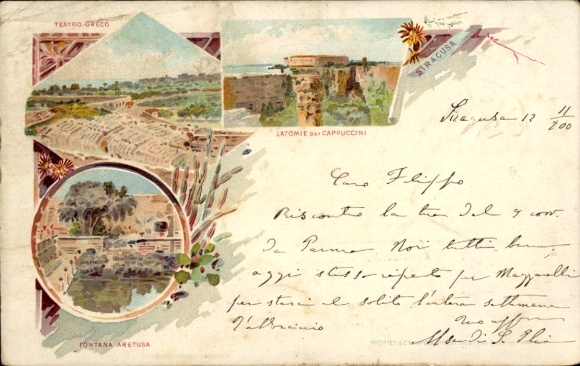 TEATRO GRECO
SIRACUSA
LATOMIE DEI CAPPUCCINI
Siracusa 12 11/900
Caro Filippo
Riscontro la tua del 9 corr.
da Parma Noi tutti bene,
oggi stesso riparto per
per starci al solito l'intera settimana
T'abbraccio
FONTANA ARETUSA